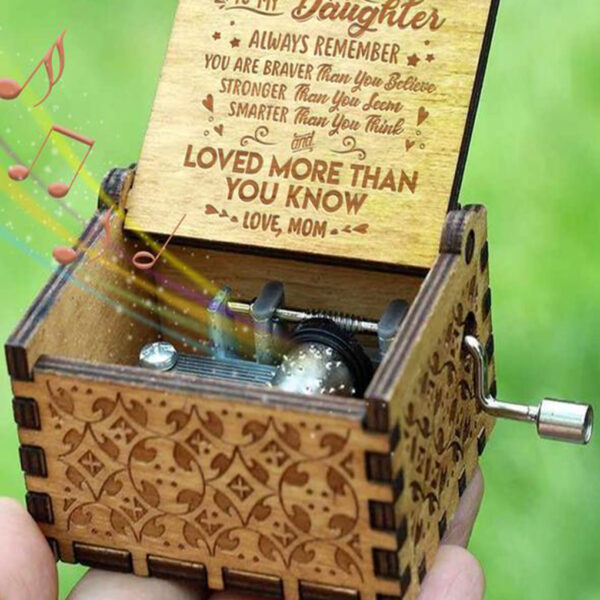 TO MY Daughter
ALWAYS REMEMBER
YOU ARE BRAVER Than You Believe
STRONGER Than You Seem
SMARTER Than You Think
and
LOVED MORE THAN
YOU KNOW
LOVE, MOM